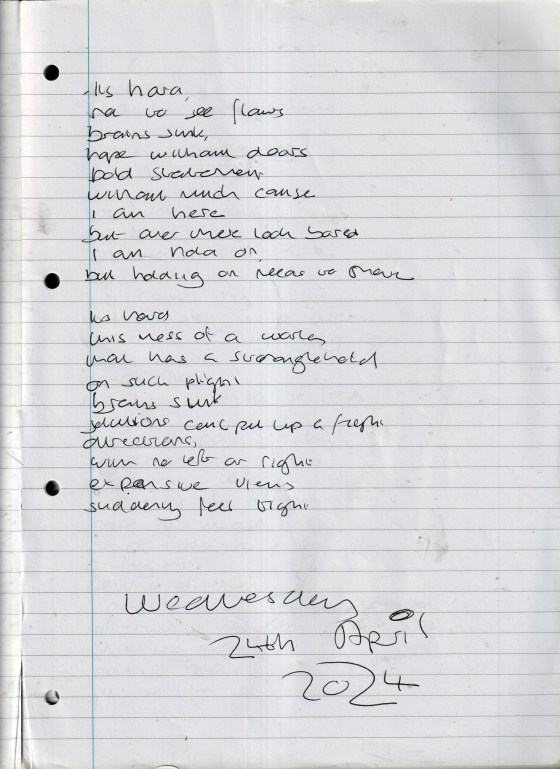 its hard,
not to see flaws
brains sink,
hope without doors
bold statement
without much cause
i am here
but over there look bored
i am hold on,
but holding on need to
its hard
this mess of a world,
that has a stranglehold
on such plight
brains sink
solutions cant put up a fight
directions,
with no left or right
expansive views
suddenly feel tight
Wednesday
24th April
2024